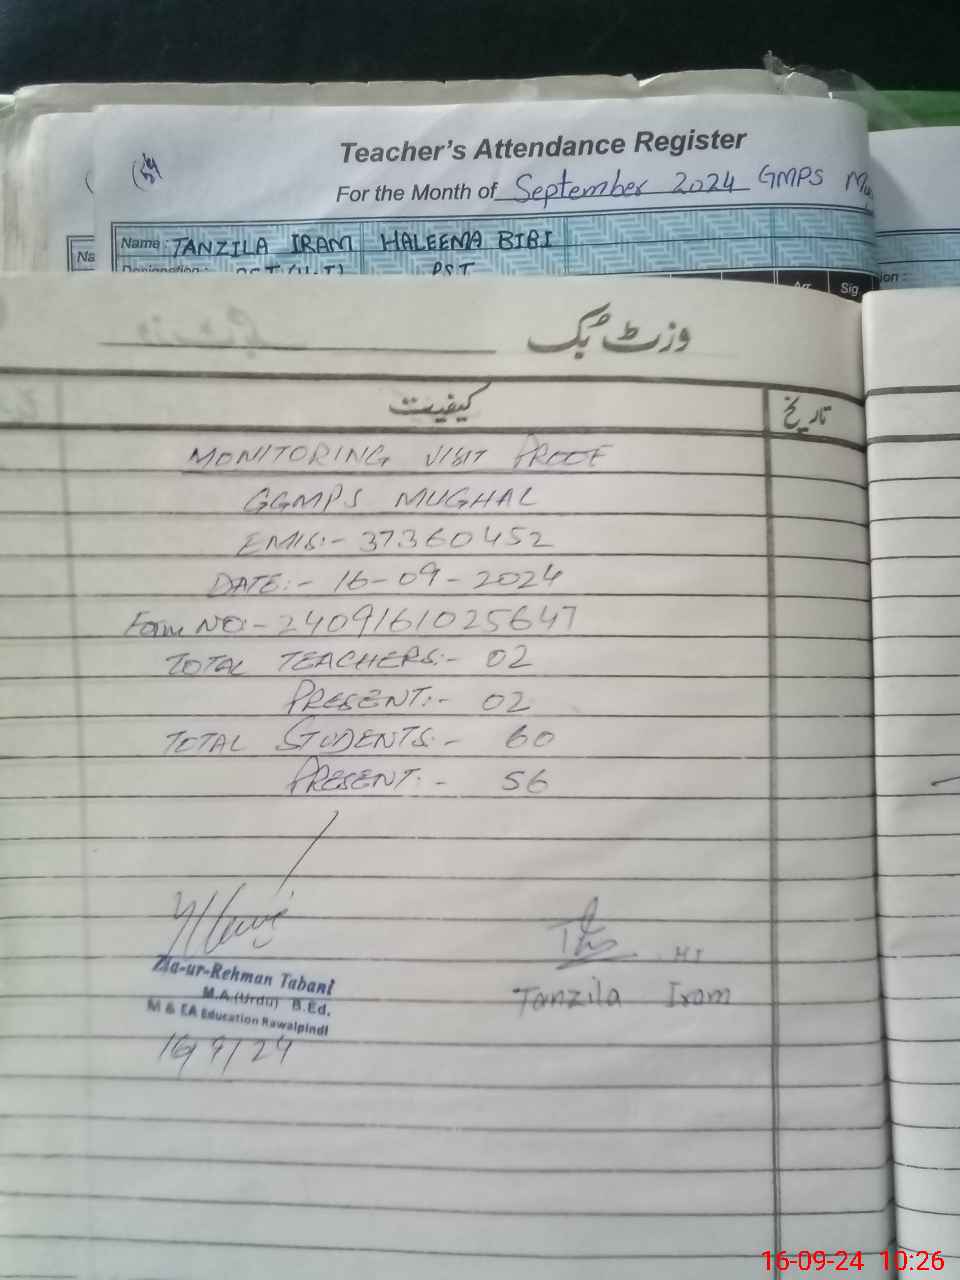 Teacher's Attendance Register
For the Month of September 2024 GMPS
Name: TANZILA IRAM HALEEMA BIBI
Na
Designation: PST
Arr Sig
ion:
وزٹ بک
کیفیت
تاریخ
MONITORING VISIT PROOF
GGMPS MUGHAL
EMIS:- 37360452
DATE:- 16-09-2024
Form NO:- 2409161025647
TOTAL TEACHERS:- 02
PRESENT:- 02
TOTAL STUDENTS:- 60
PRESENT:- 56
Zia-ur-Rehman Tabani
M.A.(Urdu) B.Ed.
M & EA Education Rawalpindi
16/9/24
HT
Tanzila Iram
16-09-24 10:26